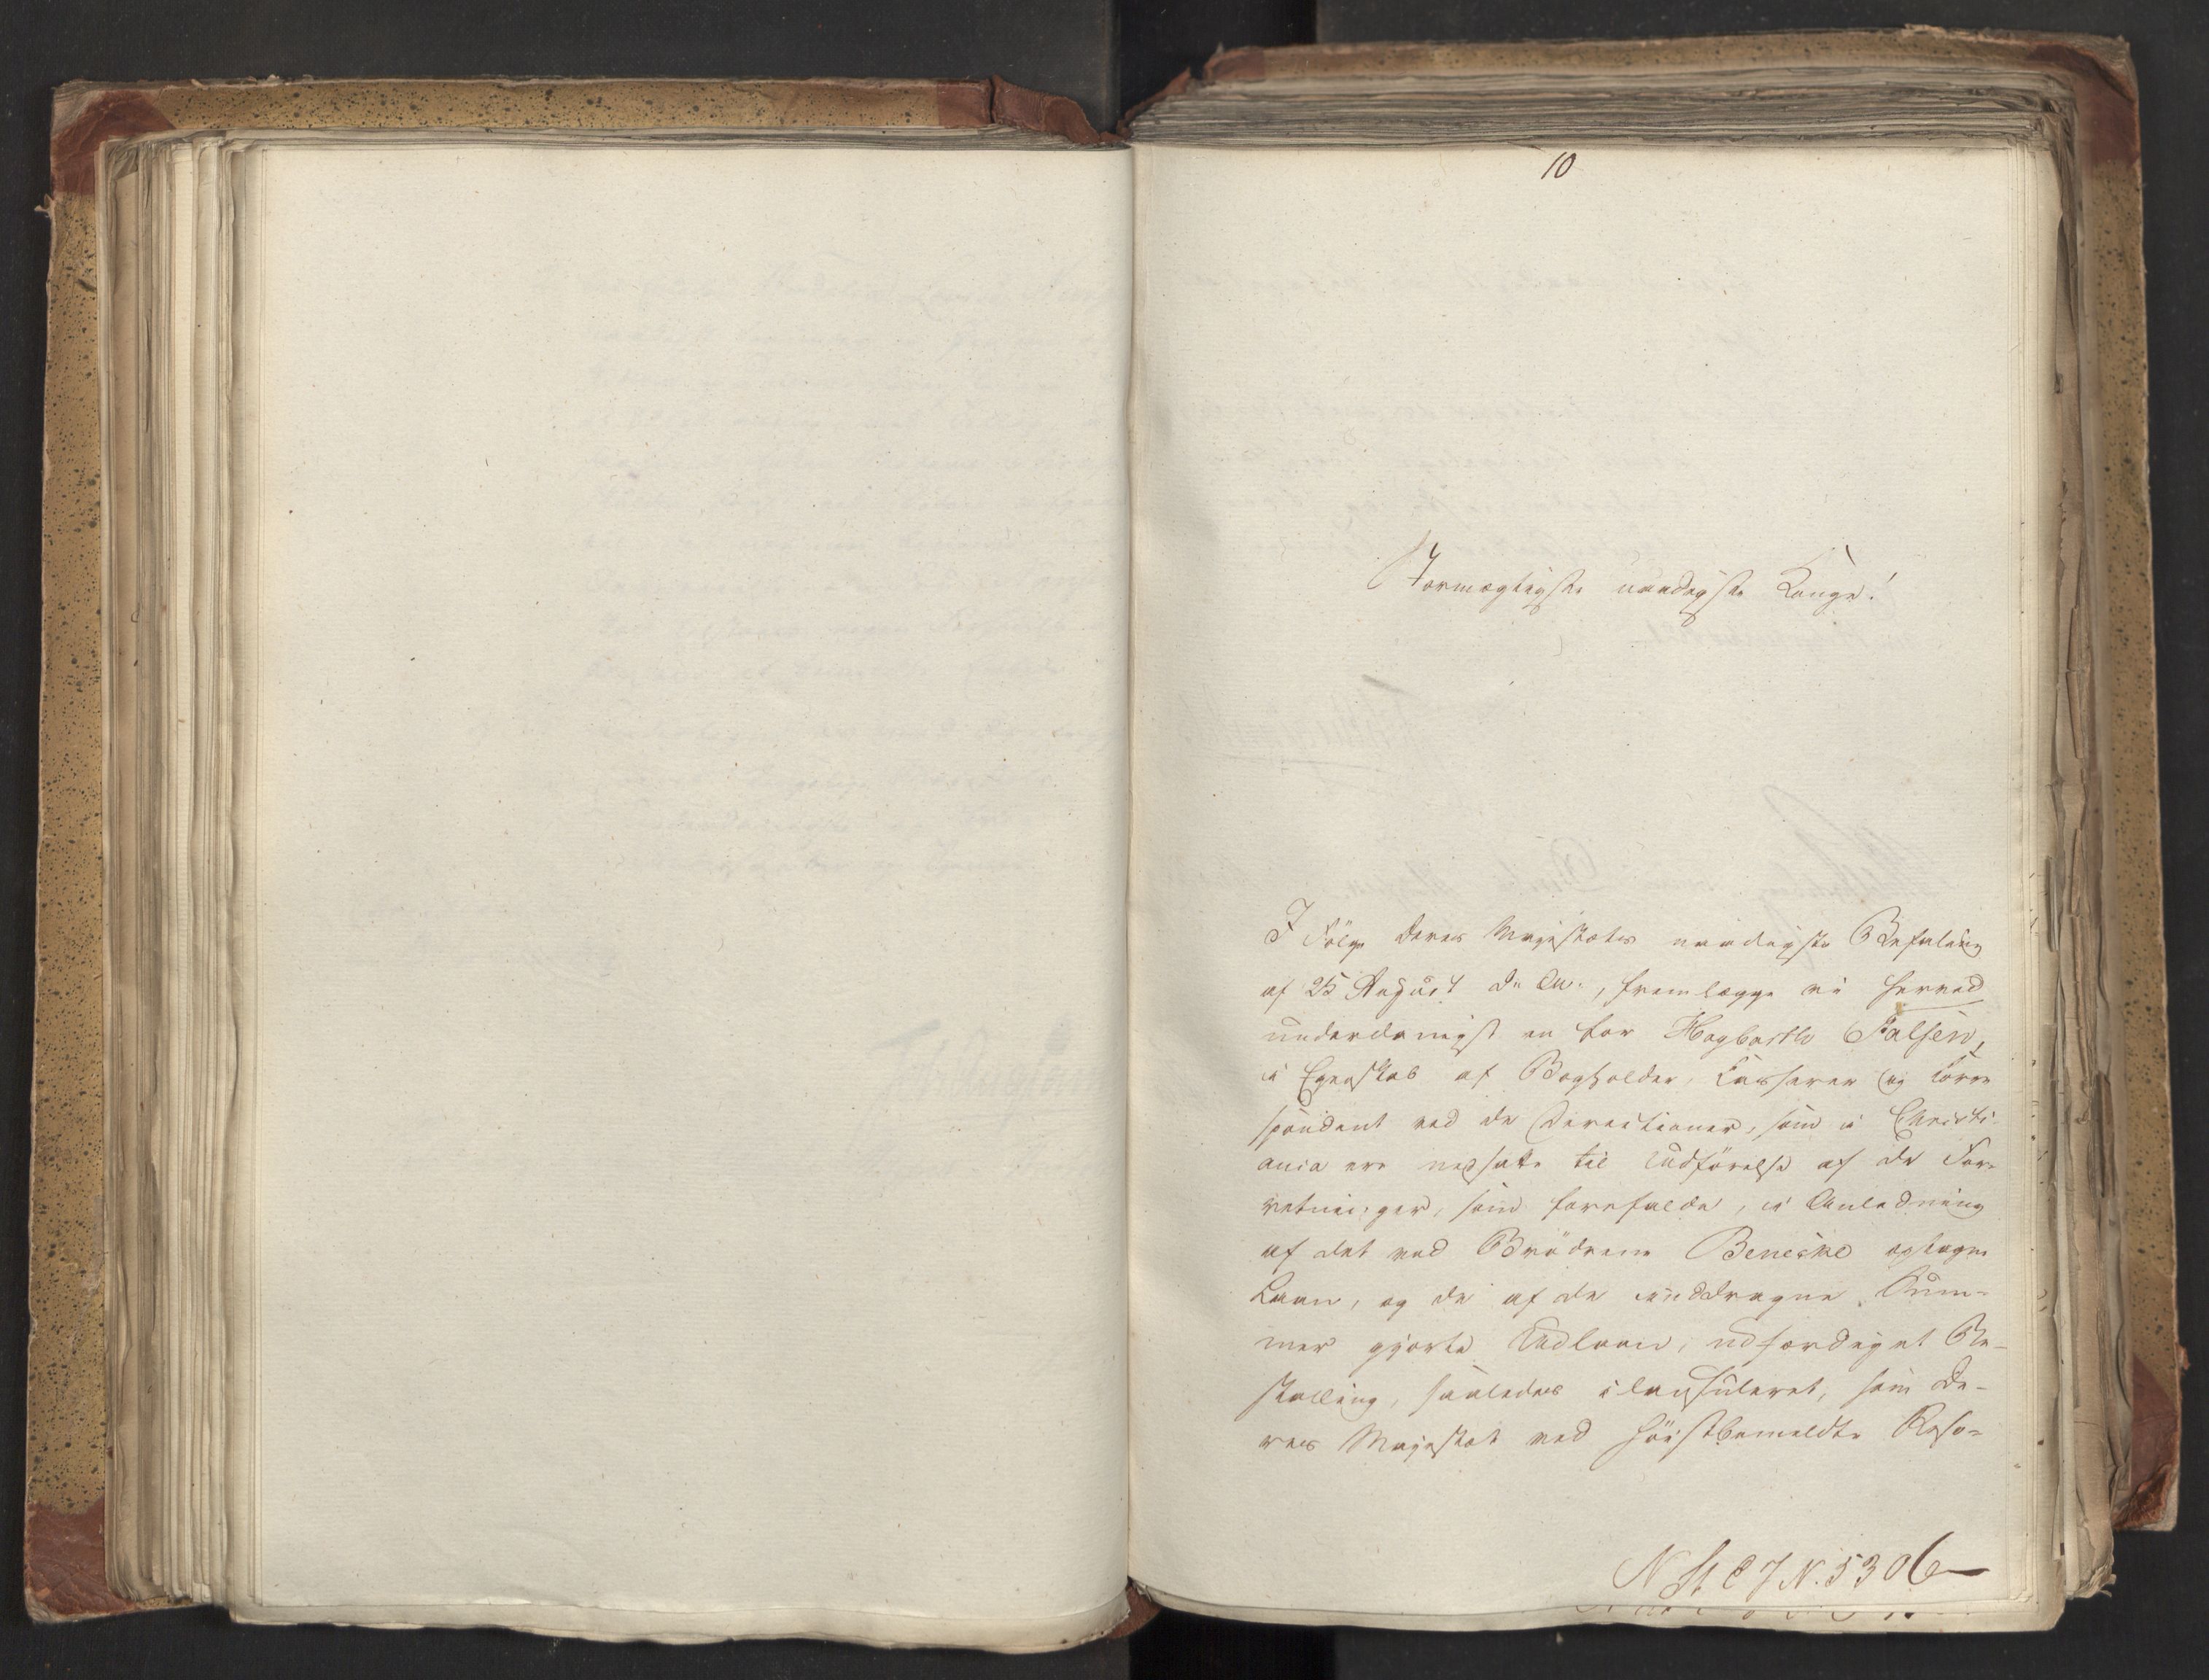 10
Stormægtigste naadigste Konge!
I Følge Deres Majestæts naadigste Befaling
af 25 August d. A., fremlægge vi herved
underdanigst en for Hagbarth Falsen,
i Egenskab af Bogholder, Casserer og Corre
spondent ved de Directioner, som i Christi
ania ere nedsatte til Udførelse af de For=
retninger, som forefalde, i Anledning
af det ved Brødrene Benecke optagne
Laan, og de af de inddragne Sum=
mer gjorte Udlaan, udfærdiget Be=
stalling, saaledes clausuleret, som De=
res Majestæt ved høistbemeldte Reso=
N St C J N. 5306